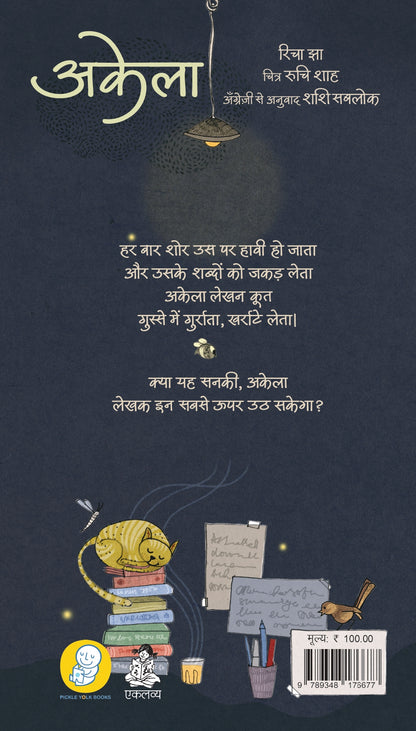 अकेला
रिचा झा
चित्र रुचि शाह
अँग्रेज़ी से अनुवाद शशि सबलोक
हर बार शोर उस पर हावी हो जाता
और उसके शब्दों को जकड़ लेता
अकेला लेखन कूत
गुस्से में गुर्राता, खर्राटे लेता|
क्या यह सनकी, अकेला
लेखक इन सबसे ऊपर उठ सकेगा?
मूल्य: ₹ 100.00
9 789348 175677
PICKLE YOLK BOOKS
एकलव्य